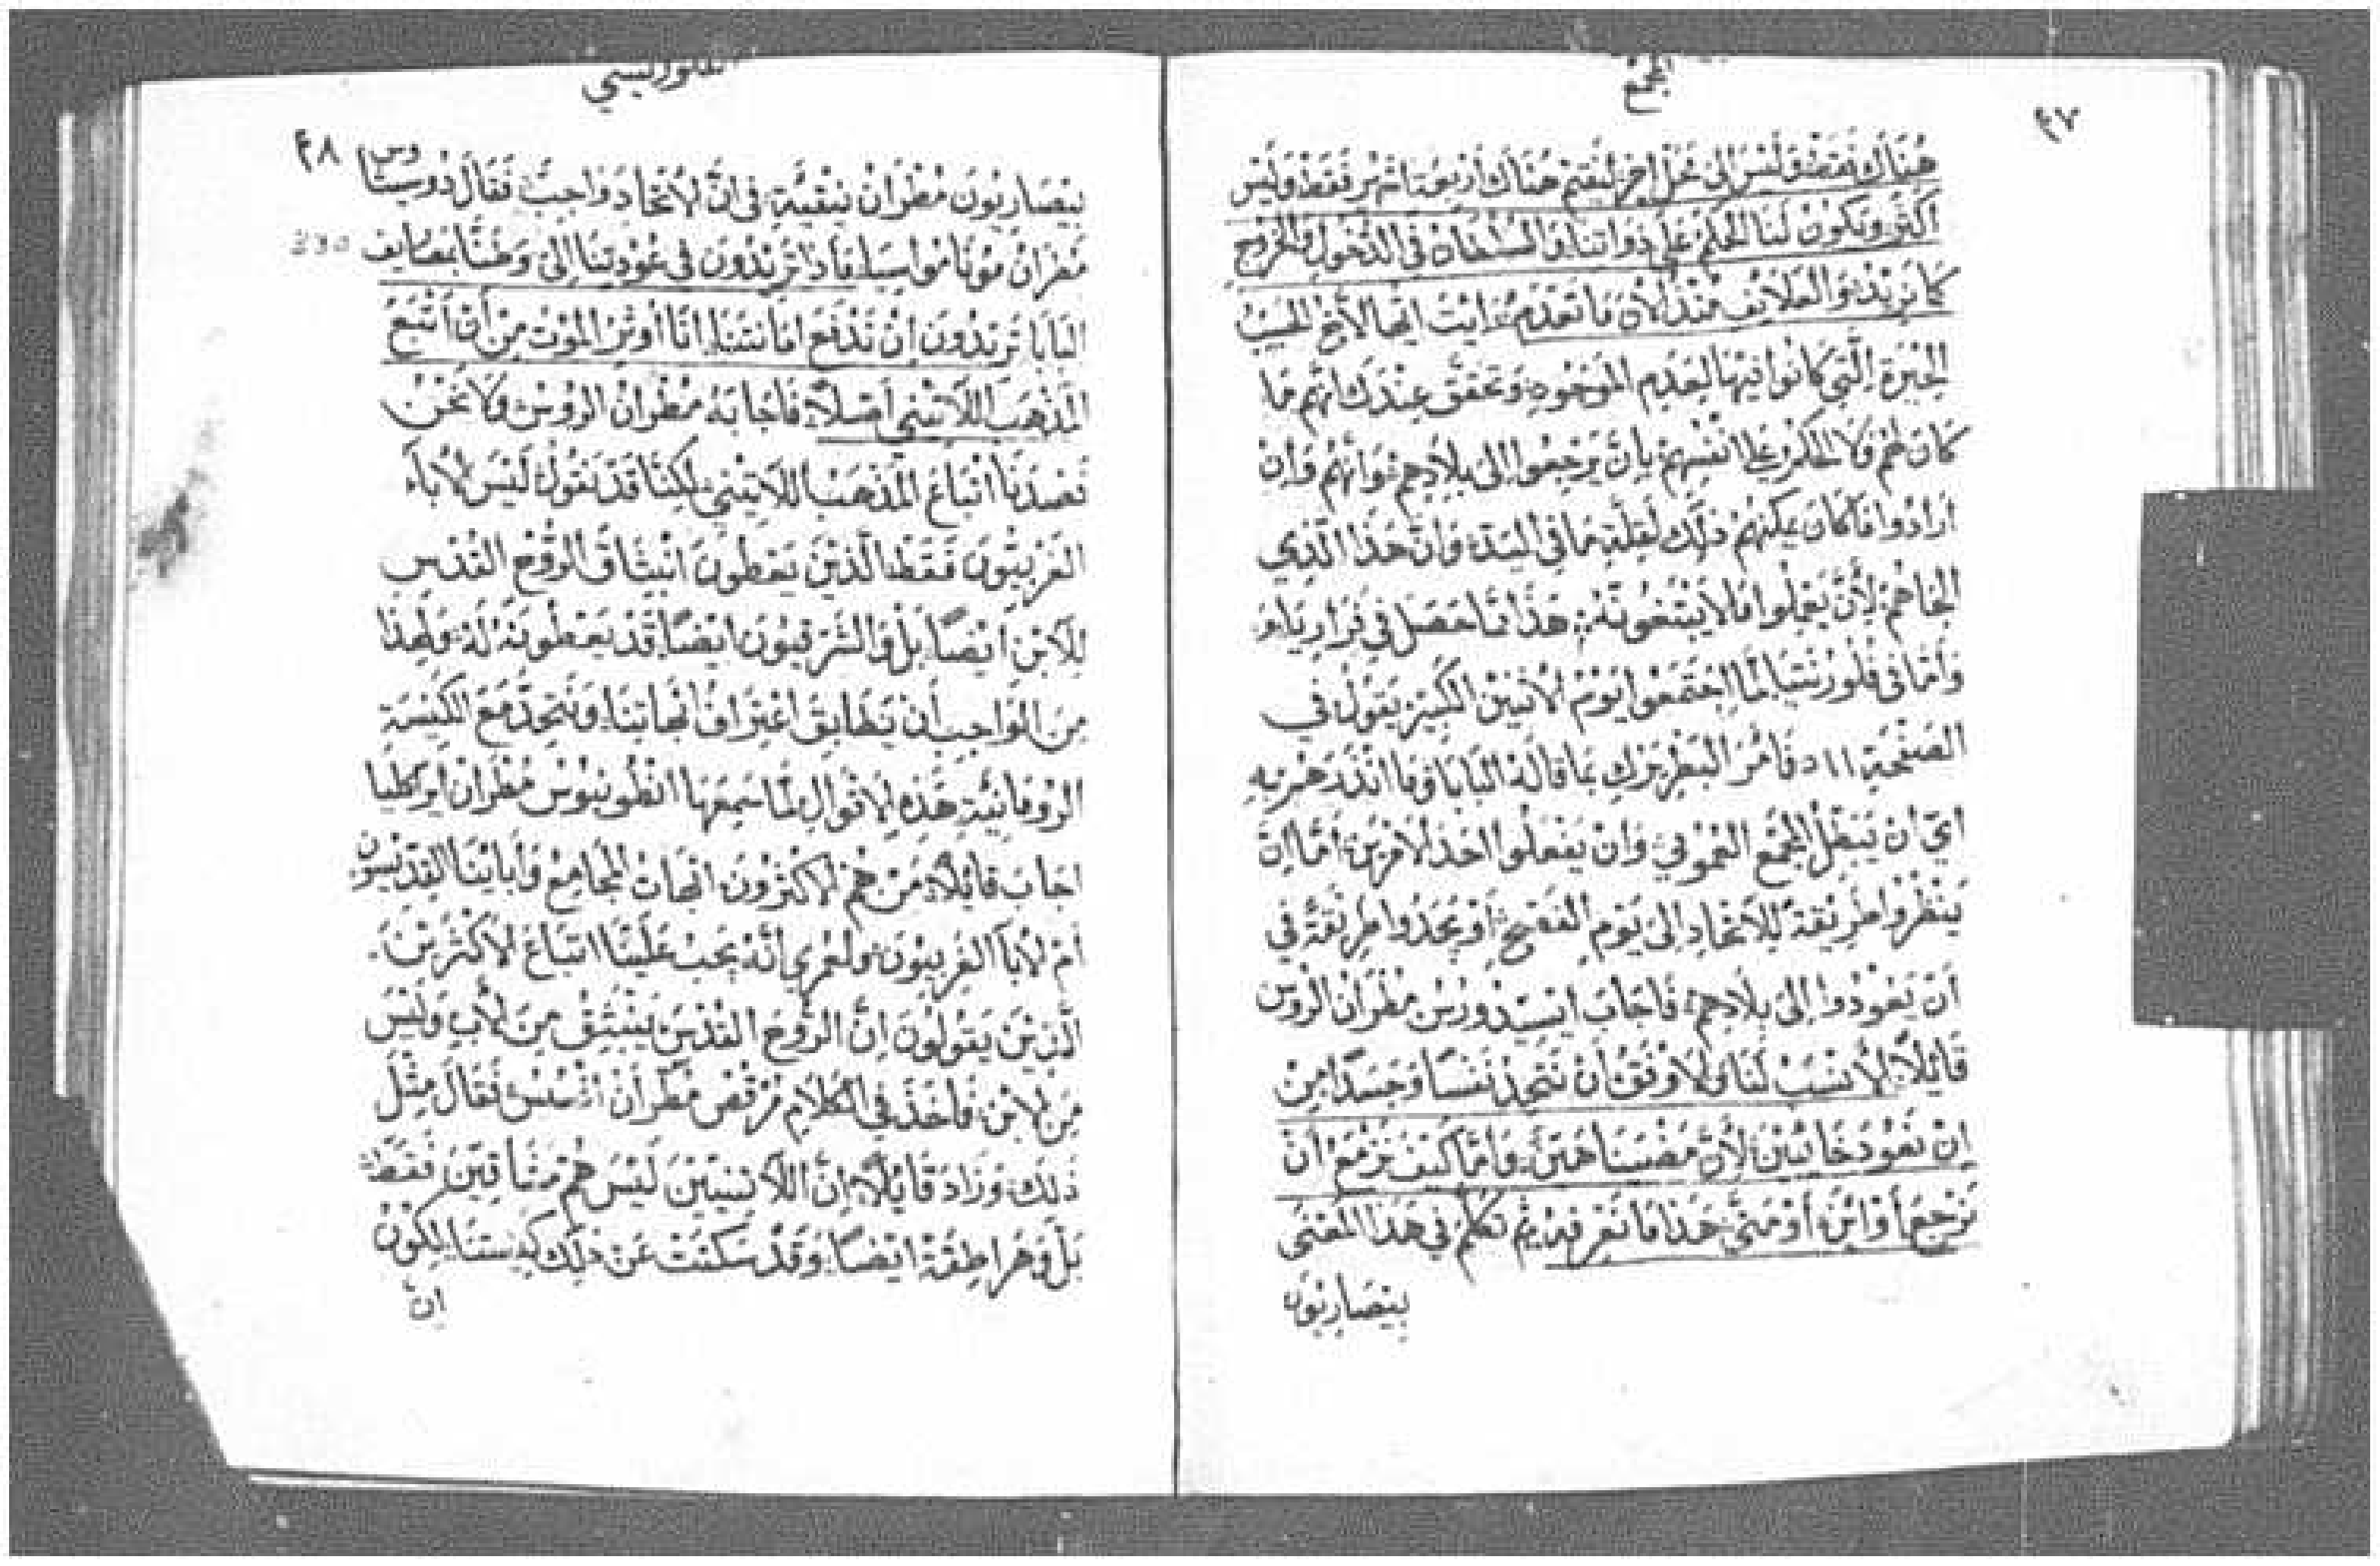 المجمع
٤٧
هناك فقط وليس إلى محل اخر لنقيم هناك أربعة اشهر فقط وليس
أكثر وتكون لنا الحكم على ذواتنا والسلطان في الدخول والخروج
كما نريد والعلايف منذ الآن ما تعدم رايت ايها الأخ الحبيب
الحيرة التي كانوا فيها لعدم الموجود وتحقق عندك انهم ما
كان لهم ولا الحكم على انفسهم بان يرجعوا إلى بلادهم وانهم وان
أرادوا فما كان يمكنهم ذلك لقلة ما في اليد وان هذا الذي
الجاهم لأن يعملوا ما لا يبتغونه هذا ما حصل في فراريا
وأما في فلورنتيا لما اجتمعوا يوم الاثنين الكبير يقول في
الصفحة ٥١١ فأمر البطريرك بما قاله البابا وما انذر حزبه
اي ان يبطل المجمع العمومي وان يفعلوا احد لأمرين اما ان
ينظروا طريقة للاتحاد إلى يوم الفصح أو يجدوا طريقة في
أن يعودوا إلى بلادهم فاجاب ايسيدورس مطران الروس
قائلاً الأنسب لنا والأوفق أن نتحد نفسا وجسدا من
ان نعود خائبين لأن مضينا هين وأما كيف نزمع أن
نرجع أو اين أو متى هذا ما نعرفه ثم تكلم في هذا المعنى
بيصاريون
الفلورنسي
٤٨
بيصاريون مطران نيقية في ان لاتحاد واجب فقال دوسيثاوس
مطران مونامواسيا فماذا تريدون في عودتنا إلى وطننا بمصاريف
البابا تريدون ان ندفع امانتنا انا أوثر الموت من أن أتبع
المذهب اللاتيني أصلاً فاجابه مطران الروس ولا نحن
قصدنا اتباع المذهب اللاتيني لكننا قد نقول ليس لآباء
الغربيون فقط الذين يعطون انبثاق الروح القدس
للابن أيضاً بل والشرقيون ايضا قد يعطونه له ولهذا
من الواجب أن يطابق اعتراف ابهاتنا ونتحد مع الكنيسة
الرومانية هذه لاقوال لما سمعها انطونيوس مطران ايركليا
اجاب قائلاً من هم لاكثرون ابهات المجامع وأباينا القديسون
أم لآباء الغربيون ولعمري أنه يجب علينا اتباع لاكثرين
الذين يقولون إن الروح القدس ينبثق من لآب وليس
من لابن فاخذ في الكلام مرقص مطران افسس فقال مثل
ذلك وزاد قائلاً إن اللاتينيين ليس هم مشاقين فقط
بل وهراطقة ايضا وقد سكتت عن ذلك كنيستنا لكون
ان